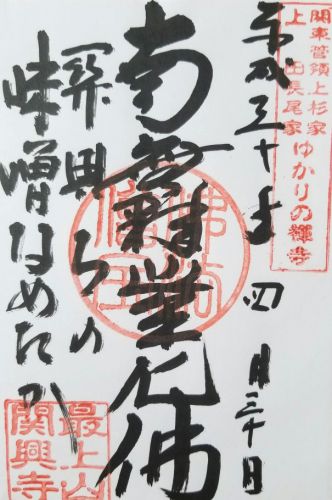 関東管領上杉家
上田長尾家ゆかりの禅寺
平成三十年四月三十日
南無釈迦牟尼佛
関興寺の
味噌なめたか
最上山
関興寺